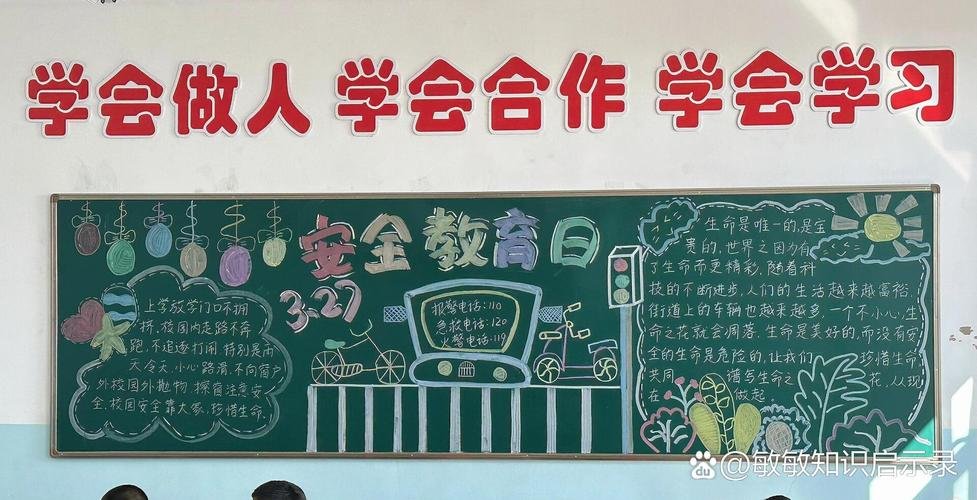 学会做人 学会合作 学会学习
安全教育日
3.27
上学放学门口不拥
挤，校园内走路不奔
跑，不追逐打闹，特别是雨
天冬天，小心路滑，不向窗户
外校园外抛物，擦窗注意安
全，校园安全靠大家，珍惜生命。
报警电话：110
急救电话：120
火警电话：119
生命是唯一的，是宝
贵的，世界之因为有
了生命而更精彩，随着科
技的不断进步，人们的生活越来越富裕，
街道上的车辆也越来越多，一个不小心，生
命之花就会凋落，生命是美好的，而没有安
全的生命是危险的，让我们 珍惜生命
共同 谱写生命之 花，从现
在 做起。
@敏敏知识启示录